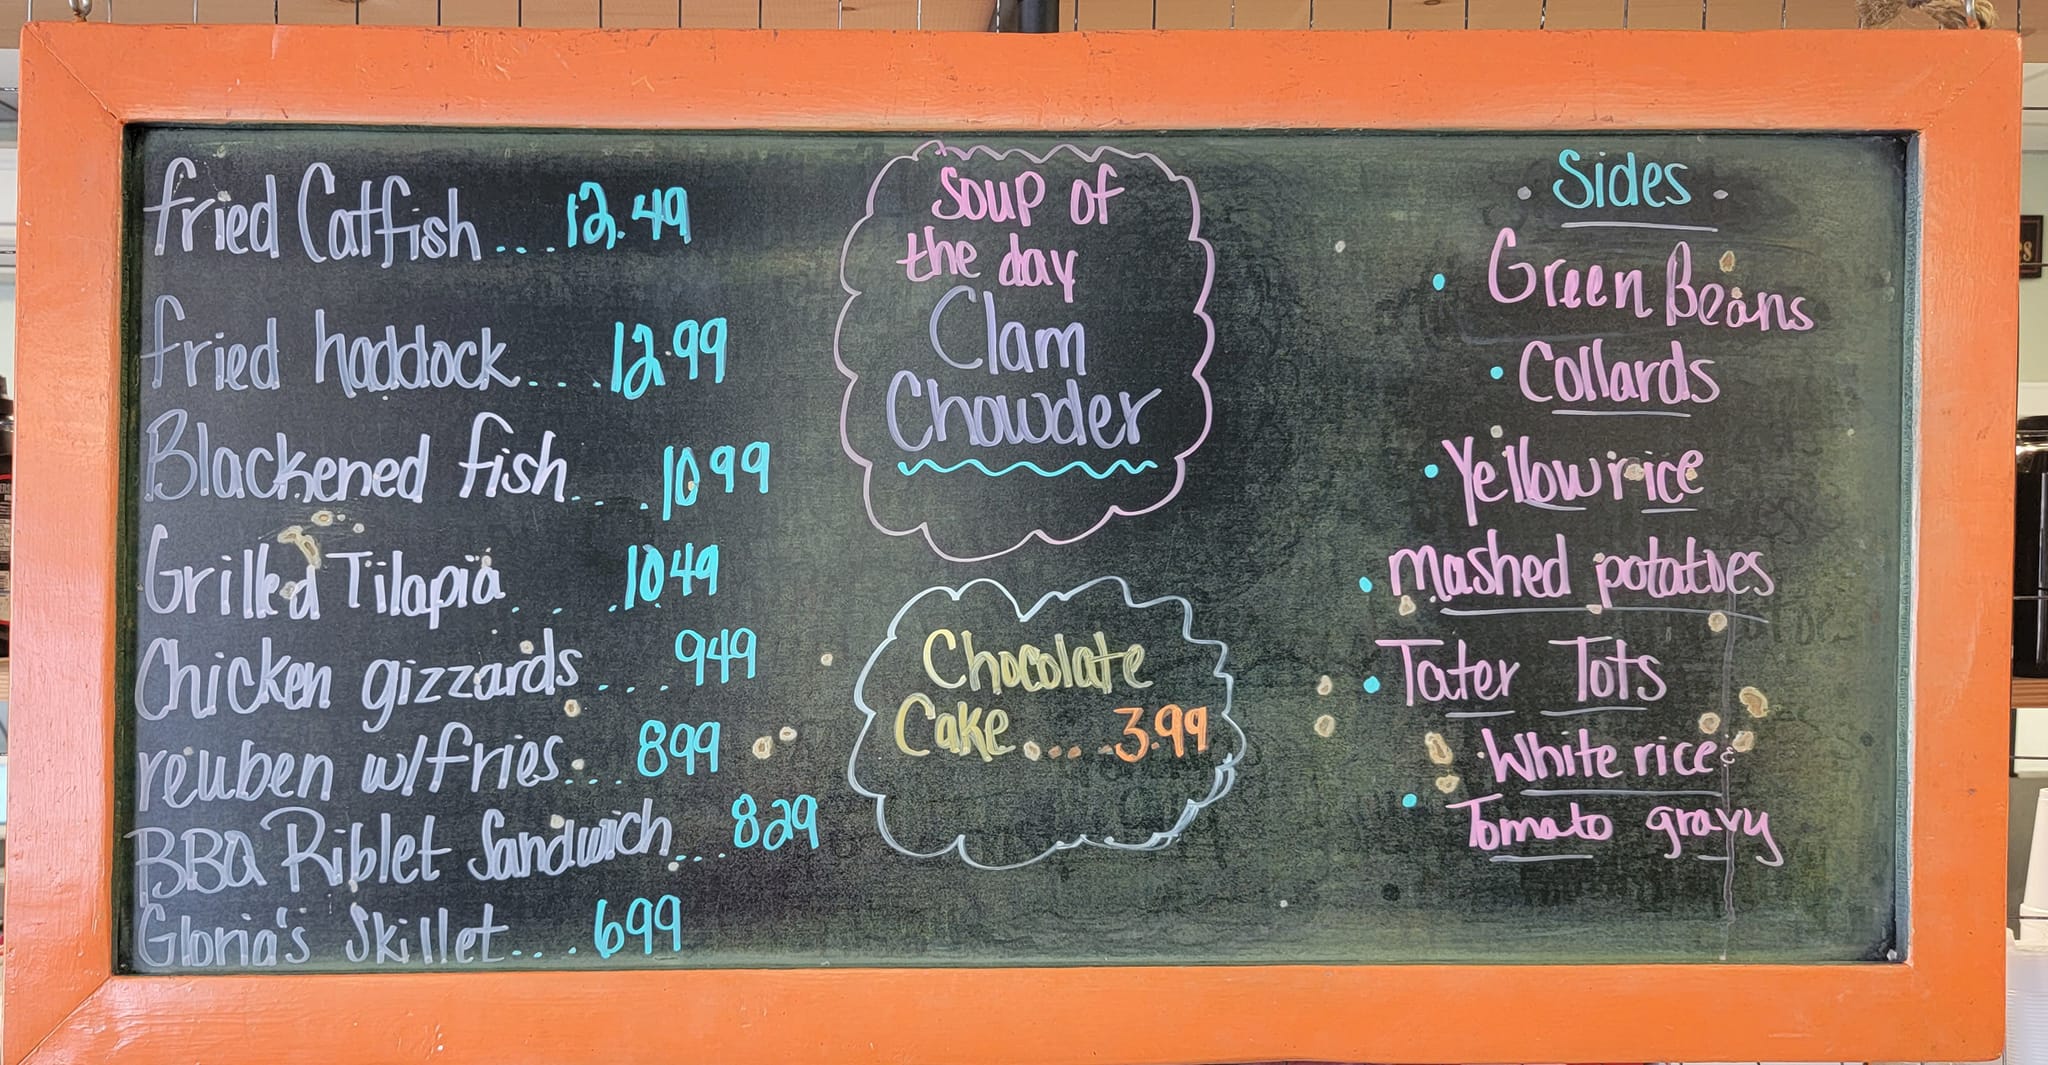 fried Catfish....12.49
fried haddock....12.99
Blackened fish....1099
Grilled Tilapia....1049
Chicken gizzards....949
reuben w/fries....899
BBQ Riblet Sandwich....829
Gloria's Skillet....699
Soup of
the day
Clam
Chowder
Chocolate
Cake....3.99
• Sides •
• Green Beans
• Collards
• Yellow rice
• Mashed potatoes
• Tater Tots
• White rice &
• Tomato gravy